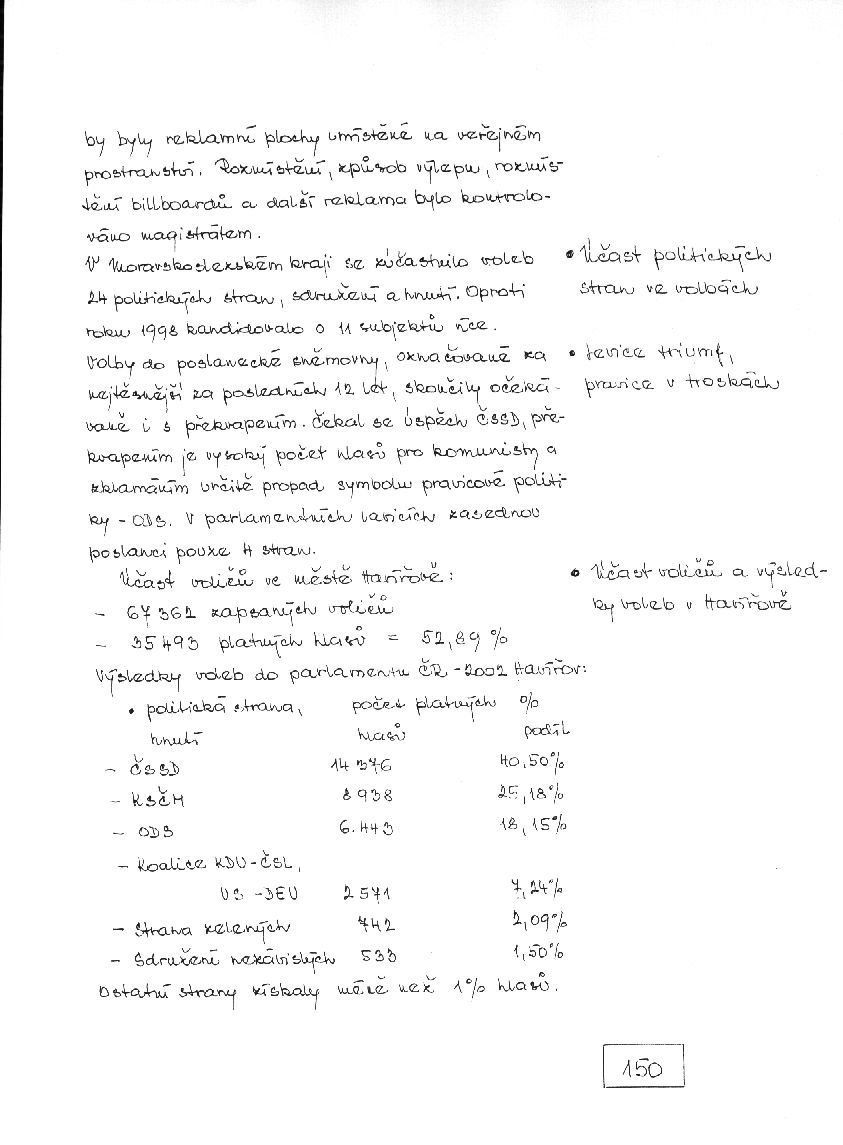 by byly reklamní plochy umístěné na veřejném
prostranství. Rozmístění, způsob výlepu, rozmís-
tění billboardů a další reklama bylo kontrolo-
váno magistrátem.
V Moravskoslezském kraji se zúčastnilo voleb
24 politických stran, sdružení a hnutí. Oproti
roku 1998 kandidovalo o 11 subjektů více.
Volby do poslanecké sněmovny, označované za
nejtěsnější za posledních 12 let, skončily očeká-
vaně i s překvapením. Čekal se úspěch ČSSD, pře-
kvapením je vysoký počet hlasů pro komunisty a
zklamáním určitě propad symbolu pravicové politi-
ky - ODS. V parlamentních lavicích zasednou
poslanci pouze 4 stran.
• Účast politických
stran ve volbách
• levice triumf,
pravice v troskách
Účast voličů ve městě Havířově:
- 67 362 zapsaných voličů
- 35 493 platných hlasů = 52,89 %
• Účast voličů a výsled-
ky voleb v Havířově
Výsledky voleb do parlamentu ČR - 2002 Havířov:
• politická strana, počet platných %
hnutí hlasů podíl
- ČSSD 14 376 40,50%
- KSČM 8 938 25,18%
- ODS 6.443 18,15%
- Koalice KDU-ČSL,
US -DEU 2 571 7,24%
- Strana zelených 742 2,09%
- Sdružení nezávislých 533 1,50%
Ostatní strany získaly méně než 1% hlasů.
150